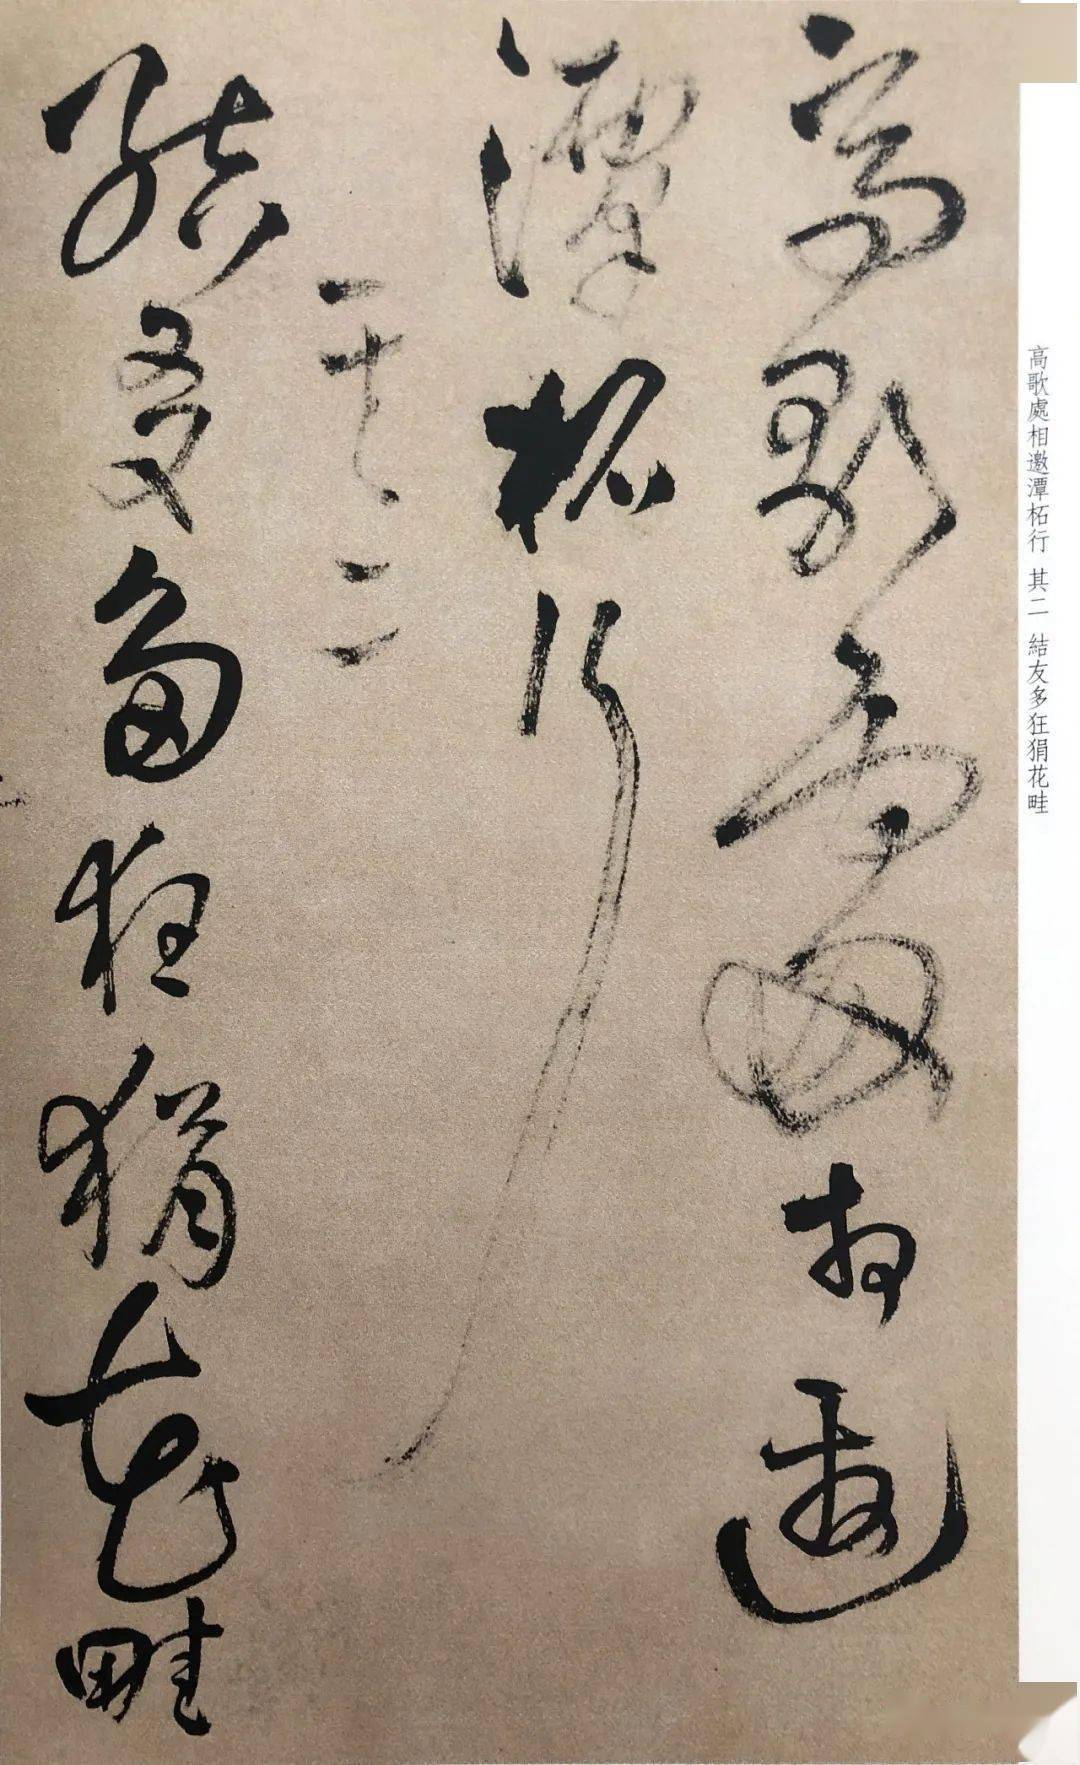 高歌處相邀
潭柘行
其二
結友多狂狷花畦
高歌處相邀潭柘行 其二 結友多狂狷花畦